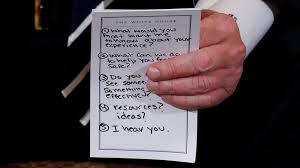 THE WHITE HOUSE
① What would you
most want me
to know about your
experience?
② What can we do
to help you feel
safe?
③ Do you
see some
something
effective
④ resources?
ideas?
⑤ I hear you.